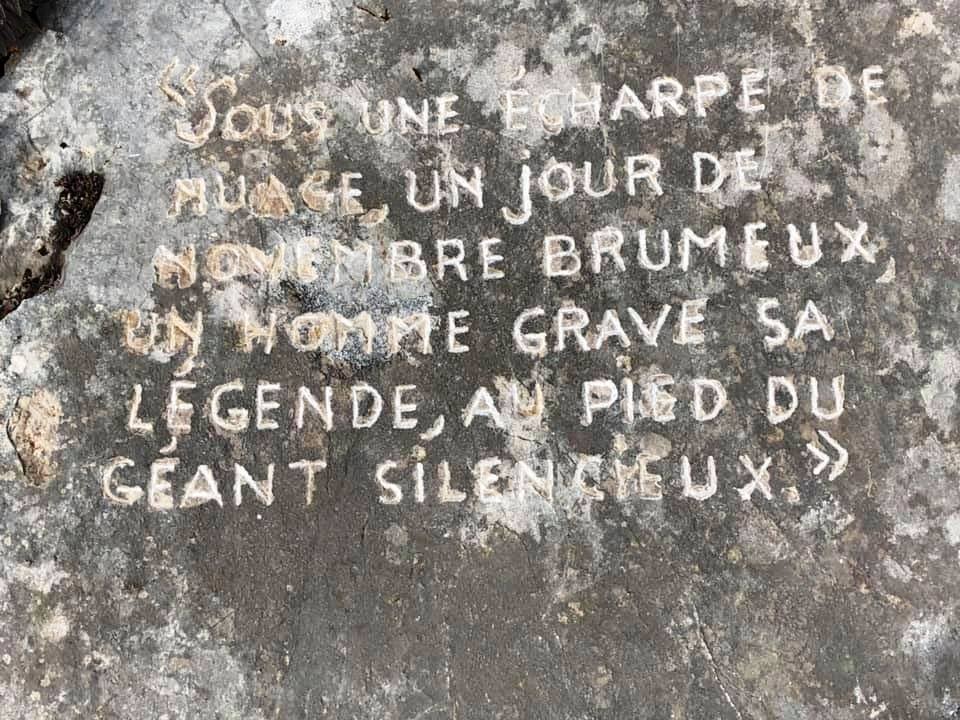 «Sous UNE ÉCHARPE DE
NUAGE, UN jOUR DE
NOVEMBRE BRUMEUX,
UN HOMME GRAVE SA
LÉGENDE, AU PiED DU
GÉANT SiLENCiEUX.»